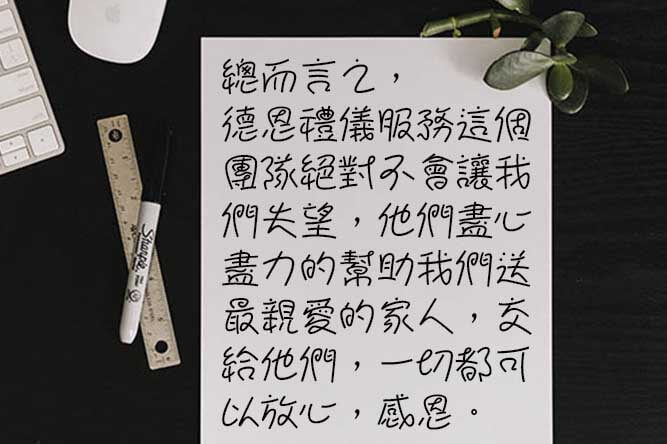 總而言之，
德恩禮儀服務這個
團隊絕對不會讓我
們失望，他們盡心
盡力的幫助我們送
最親愛的家人，交
給他們，一切都可
以放心，感恩。
Sharpie